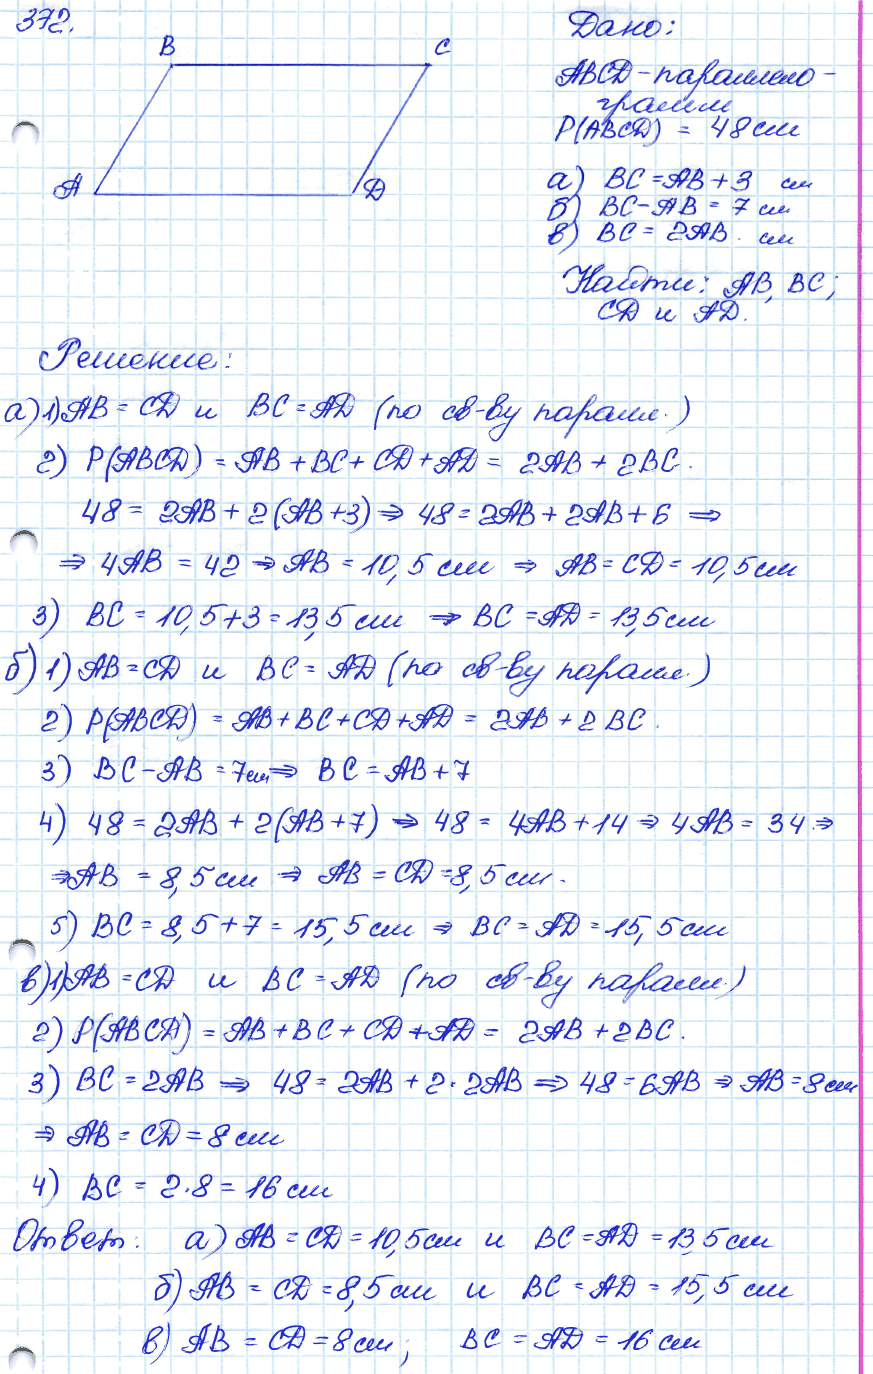 372.
B C
A D
Дано:
ABCD - параллело-
грамм
P(ABCD) = 48 см
а) BC = AB + 3 см
б) BC - AB = 7 см
в) BC = 2AB. см
Найти: AB, BC;
CD и AD.
Решение:
а) 1) AB = CD и BC = AD (по св-ву паралл.)
2) P(ABCD) = AB + BC + CD + AD = 2AB + 2BC.
48 = 2AB + 2(AB+3) ⇒ 48 = 2AB + 2AB + 6 ⇒
⇒ 4AB = 42 ⇒ AB = 10,5 см ⇒ AB = CD = 10,5 см
3) BC = 10,5 + 3 = 13,5 см ⇒ BC = AD = 13,5 см
б) 1) AB = CD и BC = AD (по св-ву паралл.)
2) P(ABCD) = AB + BC + CD + AD = 2AB + 2BC.
3) BC - AB = 7 см ⇒ BC = AB + 7
4) 48 = 2AB + 2(AB+7) ⇒ 48 = 4AB + 14 ⇒ 4AB = 34 ⇒
⇒ AB = 8,5 см ⇒ AB = CD = 8,5 см.
5) BC = 8,5 + 7 = 15,5 см ⇒ BC = AD = 15,5 см
в) 1) AB = CD и BC = AD (по св-ву паралл.)
2) P(ABCD) = AB + BC + CD + AD = 2AB + 2BC.
3) BC = 2AB ⇒ 48 = 2AB + 2·2AB ⇒ 48 = 6AB ⇒ AB = 8 см
⇒ AB = CD = 8 см
4) BC = 2·8 = 16 см
Ответ: а) AB = CD = 10,5 см и BC = AD = 13,5 см
б) AB = CD = 8,5 см и BC = AD = 15,5 см
в) AB = CD = 8 см; BC = AD = 16 см